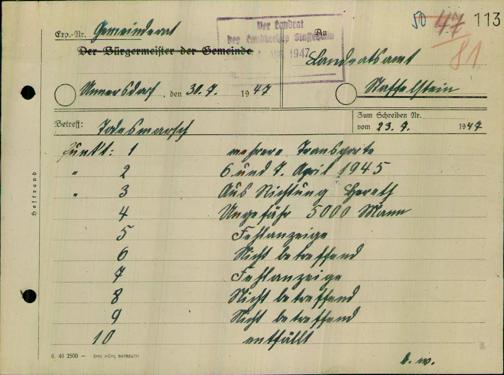 50 47 113
81
Exp.-Nr. Gemeinderat
Der Bürgermeister der Gemeinde
Der Landrat
des Landkreises Staffelstein
1947
An
Landratsamt
Unnersdorf, den 30.7. 1947
Staffelstein
Betreff: Todesmarsch
Zum Schreiben Nr.
vom 23.7. 1947
Heftrand
Punkt: 1 mehrere Transporte
" 2 6 und 7. April 1945
" 3 Aus Richtung Hereth
4 Ungefähr 5000 Mann
5 Fehlanzeige
6 Nicht betreffend
7 Fehlanzeige
8 Nicht betreffend
9 Nicht betreffend
10 entfällt
b. w.